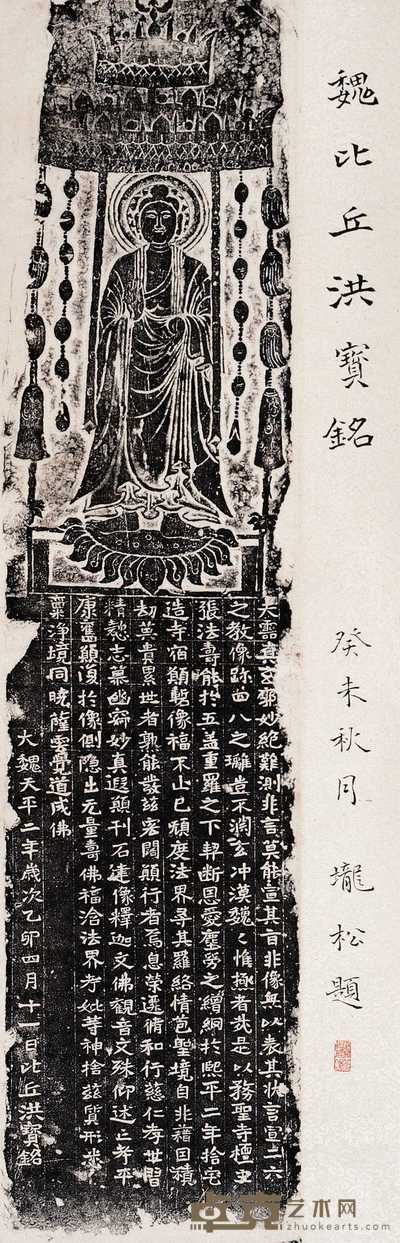 魏比丘洪寶銘
癸未秋月 壠松題
夫靈真玄廓妙絕難測非言莫能宣其旨非像無以表其狀言宣二六
之教像跡四八之璀豈不淵玄沖漠巍々惟極者哉是以務聖寺檀主
張法壽能於五蓋重羅之下契斷恩愛塵勞之繒網於熙平二年捨宅
造寺宿願暫像福不止已頑度法界尋其羅絡情苞聖境自非藉因積
劫莫貴累世者孰能發茲宏閣願行者焉息榮遷脩和行慈仁孝世習
精懃志慕幽寂妙真遐願刊石建像釋迦文佛觀音文殊仰述亡考平
康舊願復於像側隱出无量壽佛福洽法界考妣等神捨茲質形米
稟淨境同曉薩雲覺道成佛
大魏天平二年歲次乙卯四月十一日比丘洪寶銘
卓克艺术网
zhuokearts.com